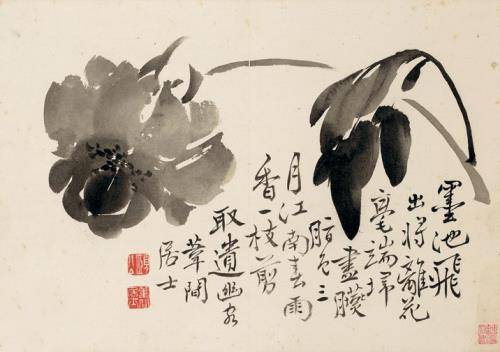 墨池飛
出將離花
毫端掃
盡臙
脂色三
月江南春雨
香一枝剪
取遺幽客
葦間
居士